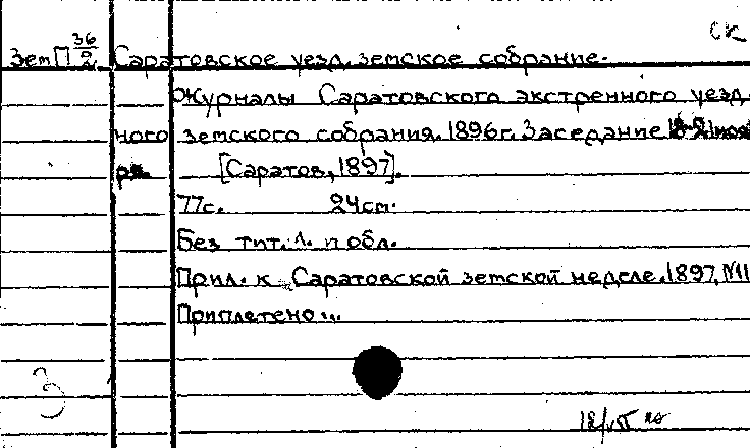 СК
Зем П 36/2 Саратовское уезд. земское собрание.
Журналы Саратовского экстренного уезд-
ного земского собрания. 1896г. Заседание
ря. [Саратов, 1897].
77с. 24см.
Без тит. л. и обл.
Прил. к Саратовской земской неделе. 1897, №11
Приплетено...
З